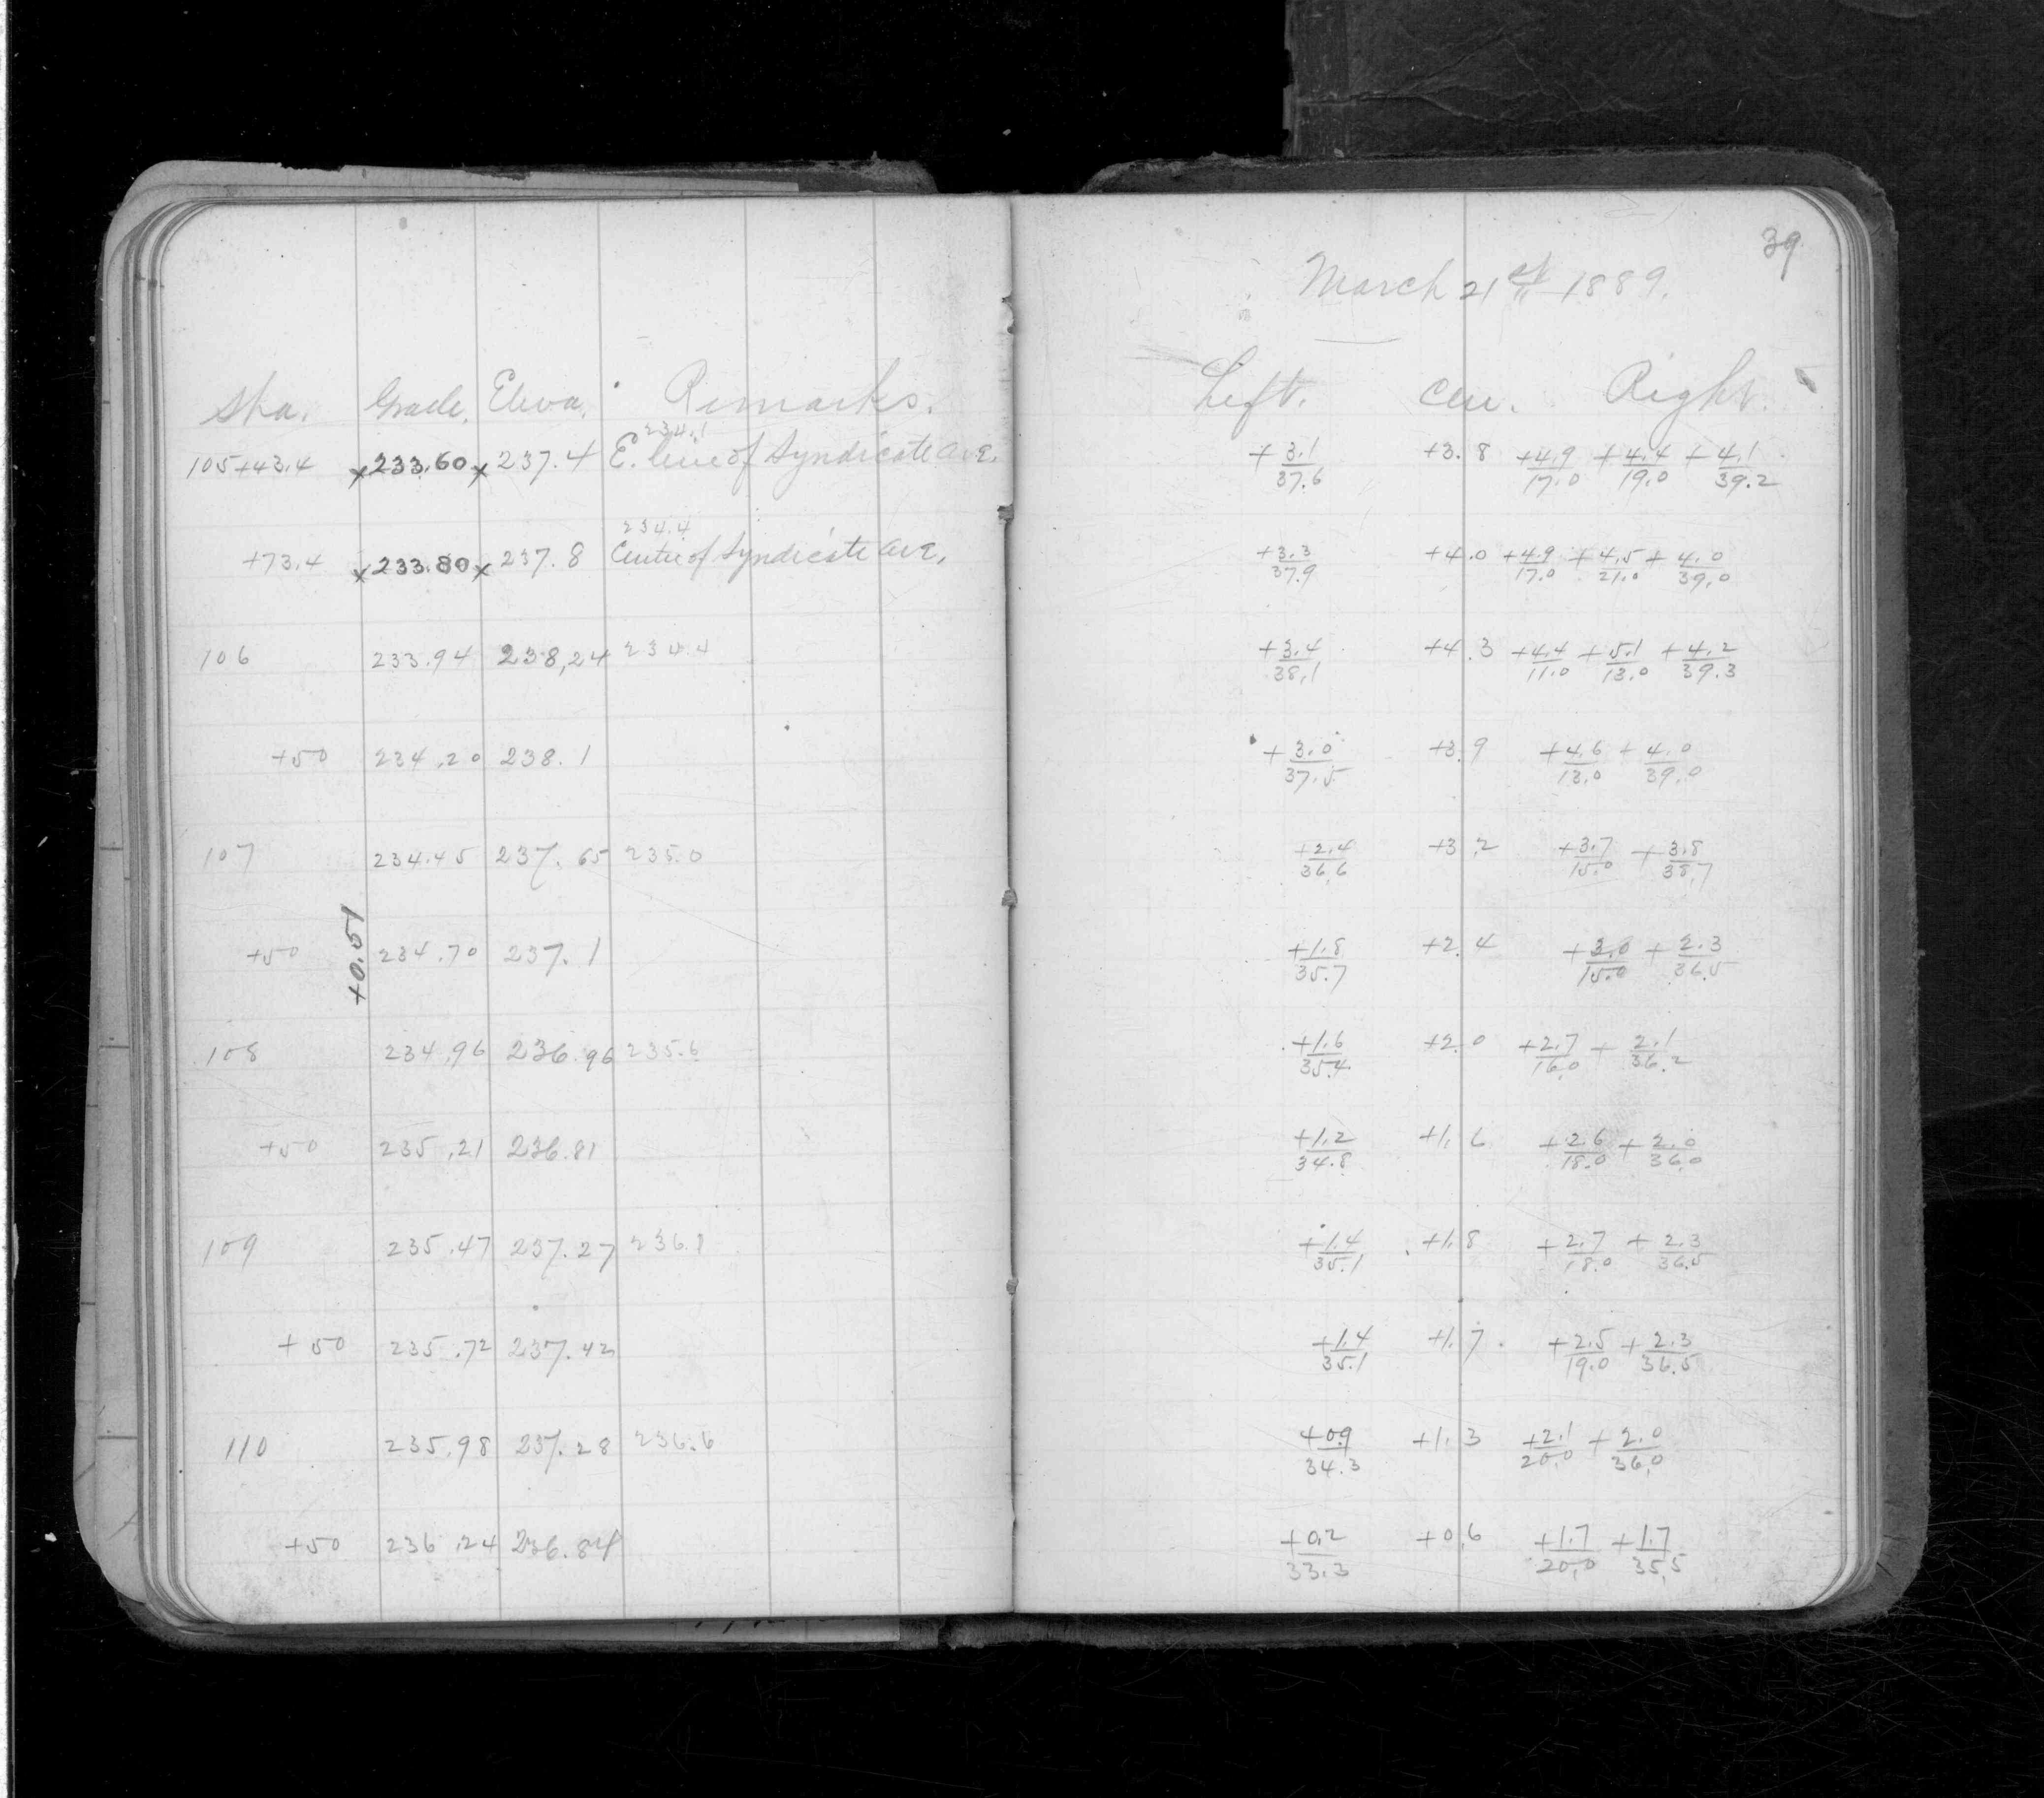 39
March 21st 1889.
Sta. Grade. Eleva. Remarks. Left. Cen. Right.
234.1
105+43.4 x 233.60 x 237.4 E. line of Syndicate Ave. +3.1/37.6 +3.8 +4.9/17.0 +4.4/19.0 +4.1/39.2
234.4
+73.4 x 233.80 x 237.8 Centre of Syndicate Ave. +3.3/37.9 +4.0 +4.9/17.0 +4.5/21.0 +4.0/39.0
106 233.94 238.24 234.4 +3.4/38.1 +4.3 +4.4/11.0 +5.1/13.0 +4.2/39.3
+50 234.20 238.1 +3.0/37.5 +3.9 +4.6/13.0 +4.0/39.0
107 234.45 237.65 235.0 +2.4/36.6 +3.2 +3.7/15.0 +3.8/38.7
+0.51
+50 234.70 237.1 +1.8/35.7 +2.4 +3.0/15.0 +2.3/36.5
108 234.96 236.96 235.6 +1.6/35.4 +2.0 +2.7/16.0 +2.1/36.2
+50 235.21 236.81 +1.2/34.8 +1.6 +2.6/18.0 +2.0/36.0
109 235.47 237.27 236.1 +1.4/35.1 +1.8 +2.7/18.0 +2.3/36.5
+50 235.72 237.42 +1.4/35.1 +1.7 +2.5/19.0 +2.3/36.5
110 235.98 237.28 236.6 +0.9/34.3 +1.3 +2.1/20.0 +2.0/36.0
+50 236.24 236.84 +0.2/33.3 +0.6 +1.7/20.0 +1.7/35.5